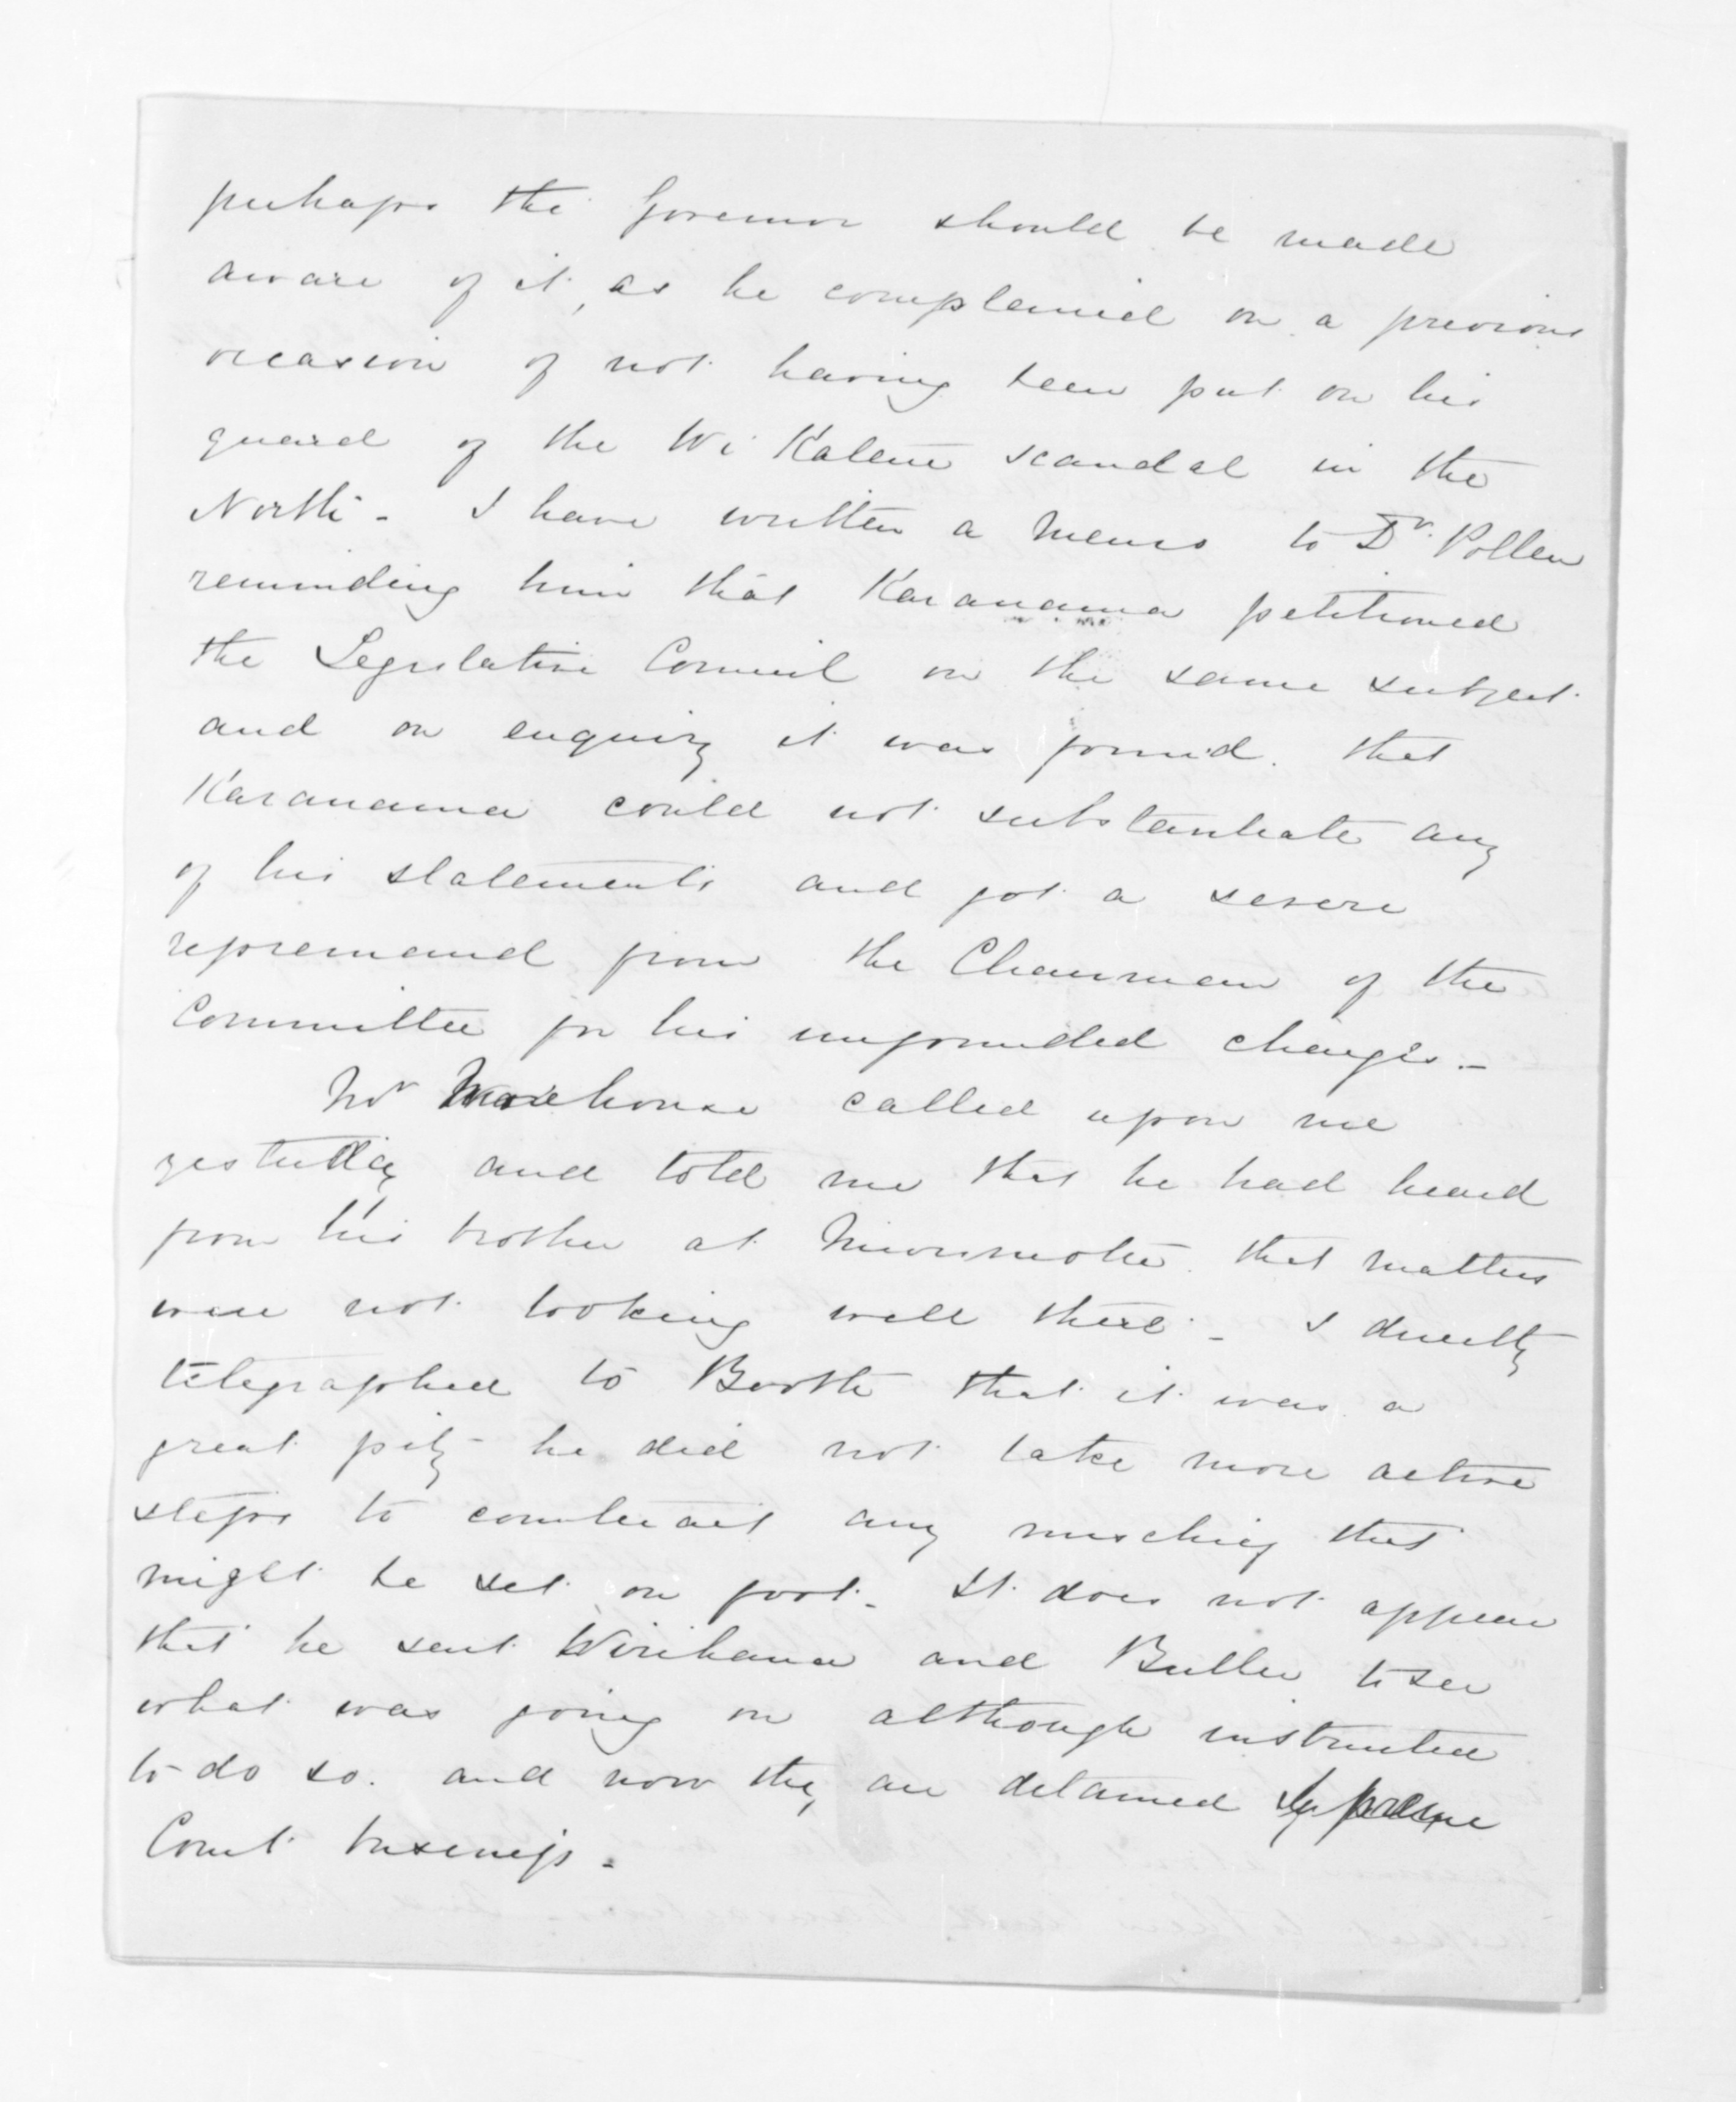 perhaps the Governor should be made
aware of it, as he complained on a previous
occasion of not having been put on his
guard of the Wi Katene scandal in the
North - I have written a memo to Dr. Pollen
reminding him that Karanama petitioned
the Legislative Council on the same subject
and on enquiry it was found that
Karanama could not substantiate any
of his statements and got a severe
repremand from the Chairman of the
Committee for his unfounded charges -
Mr Morehouse called upon me
yesterday and told me that he had heard
from his brother at that matters
were not looking well there - I directly
telegraphed to Booth that it was a
great pity he did not take more active
steps to counteract any mischief that
might be set on foot - It does not appear
that he sent Wirihana and Butler to see
what was going on although instructed
to do so. and now they are detained Supreme
Court business -